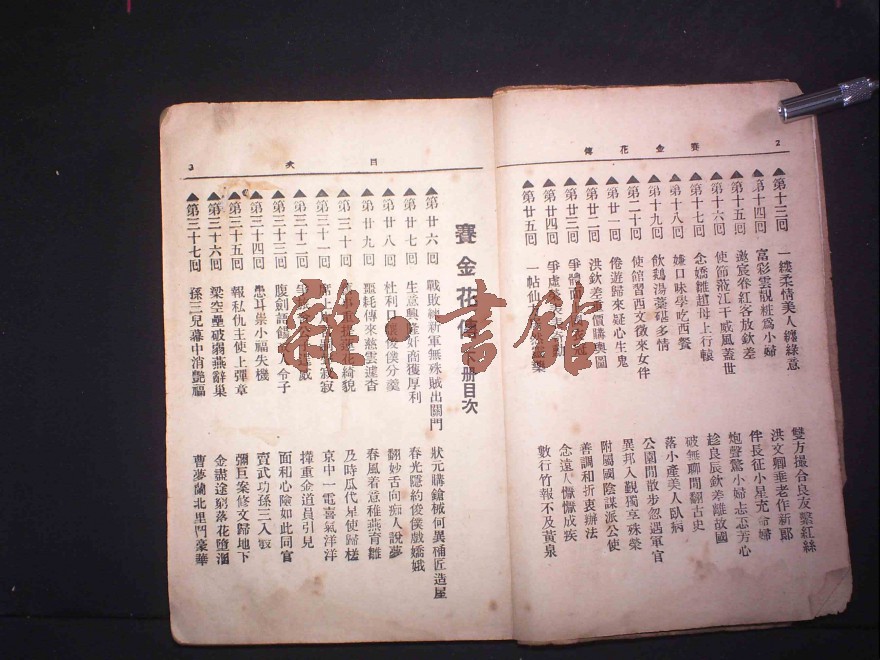 賽金花傳
2
▲第十三回 一縷柔情美人纏綠意 雙方撮合良友繫紅絲
▲第十四回 富彩雲靚粧爲小婦 洪文卿垂老作新郎
▲第十五回 邀宸眷紅客放欽差 伴長征小星充命婦
▲第十六回 使節蒞江干威風蓋世 炮聲驚小婦忐忑芳心
▲第十七回 念嬌雛趙母上行轅 趁良辰欽差離故國
▲第十八回 嫌口味學吃西餐 破無聊閒翻古史
▲第十九回 飲鷄湯藥砒多情 落小產美人臥病
▲第二十回 使館習西文徵來女伴 公園閒散步忽遇軍官
▲第廿一回 倦遊歸來疑心生鬼 異邦入覲獨享殊榮
▲第廿二回 洪欽差 價購輿圖 附屬國陰謀派公使
▲第廿三回 爭體面 善調和折衷辦法
▲第廿四回 爭虛 念遠人懨懨成疾
▲第廿五回 一帖仙 藥 數行竹報不及黃泉
目次
3
賽金花傳下册目次
▲第廿六回 戰敗 新軍無殊賊出關門 狀元購鎗械何異桶匠造屋
▲第廿七回 生意興隆奸商獲厚利 春光隱約俊僕戲嬌娥
▲第廿八回 杜利口 俊僕分羹 翻妙舌向痴人說夢
▲第廿九回 噩耗傳來慈雲遽杳 春風着意稚燕育雛
▲第三十回 綺貌 及時瓜代星使歸槎
▲第三十一回 席上 寂寂 京中一電喜氣洋洋
▲第三十二回 戲 擁重金道員引見
▲第三十三回 腹劍語 令子 面和心險如此同官
▲第三十四回 患耳祟小福失機 賣武功孫三入彀
▲第三十五回 報私仇主使上彈章 彌巨案修文歸地下
▲第三十六回 梁空壘破弱燕辭巢 金盡途窮落花墮溷
▲第三十七回 孫三兒幕中消艷福 曹夢蘭北里鬥豪華
雜·書館